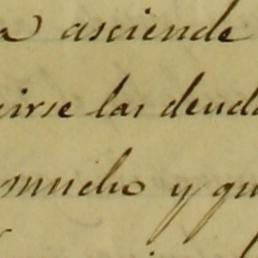 a asciende
cirse las deuda
mucho y qu